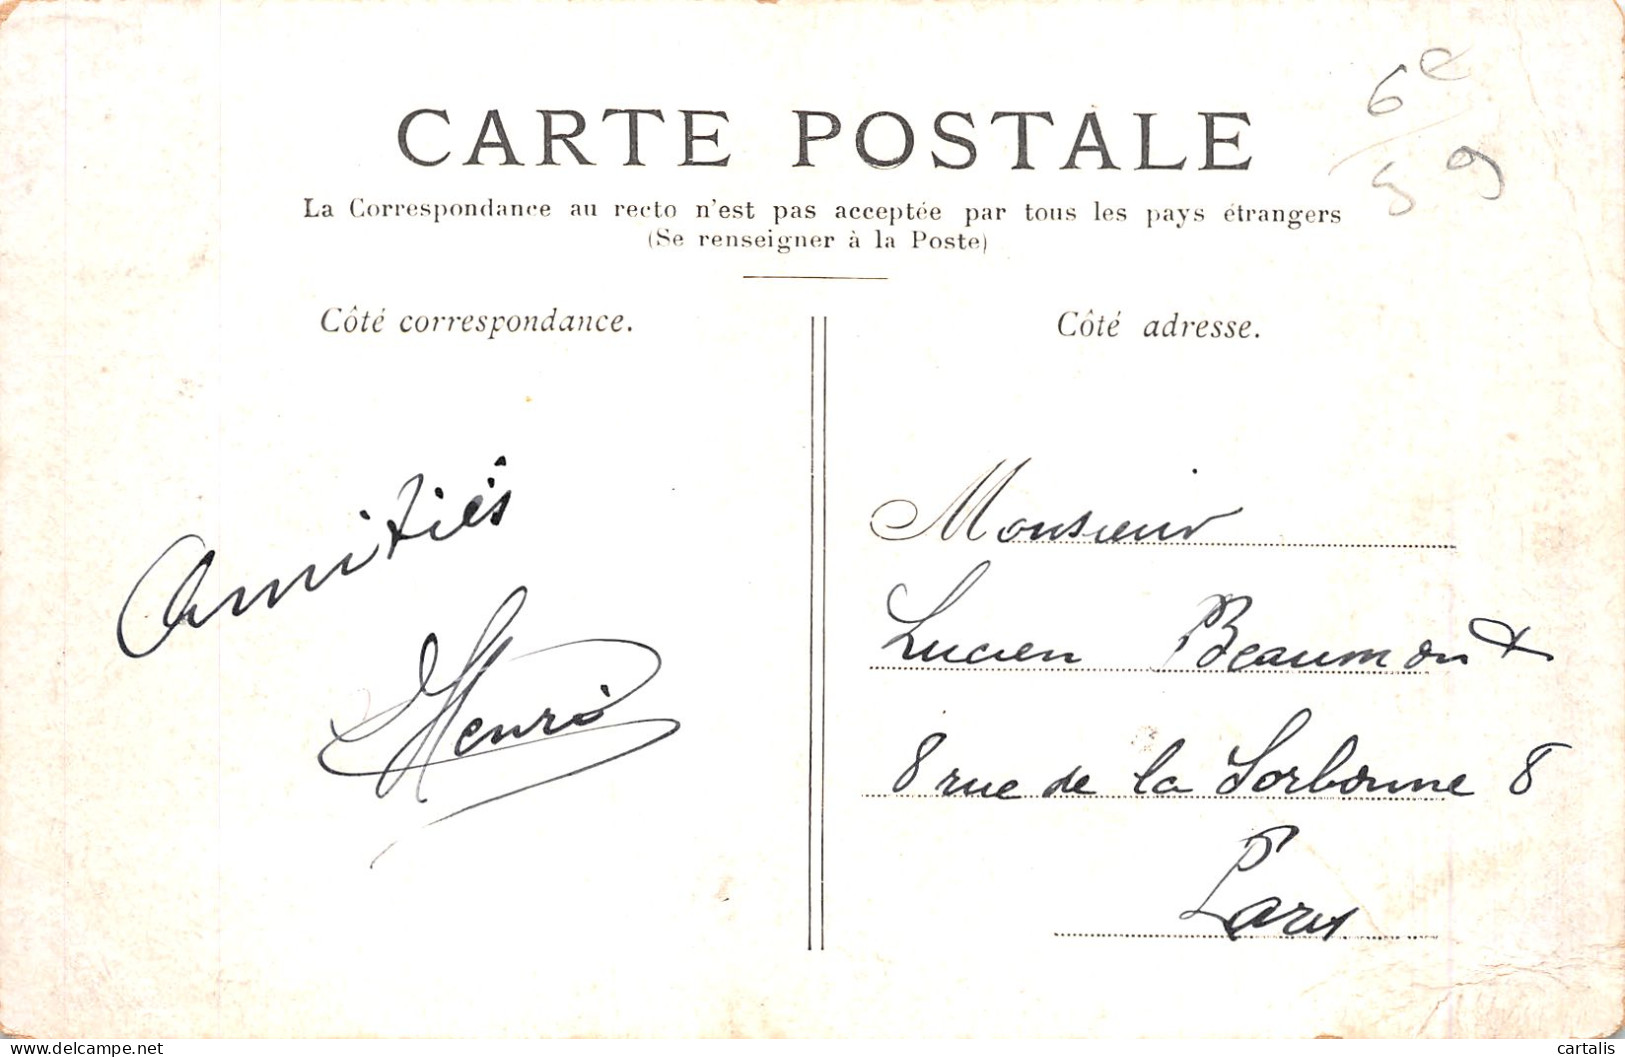 6e
59
CARTE POSTALE
La Correspondance au recto n'est pas acceptée par tous les pays étrangers
(Se renseigner à la Poste)
Côté correspondance.
Côté adresse.
Amitiés
Henri
Monsieur
Lucien Beaumont
8 rue de la Sorbonne 8
Paris
delcampe.net
cartalis